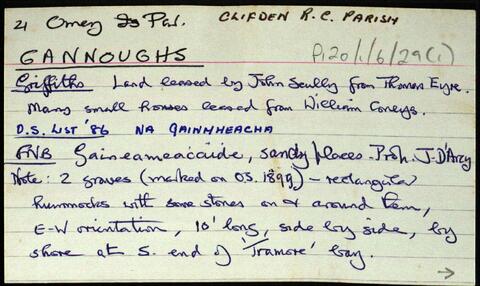 21 Omey Par. CLIFDEN R.C. PARISH
P120/1/6/29(i)
GANNOUGHS
Griffiths Land leased by John Scully from Thomas Eyre.
Many small houses leased from William Coneys.
O.S. LIST '86 NA GAINMHEACHA
FNB Gaineameacaide, sandy places. Proh. J. D'Arcy
Note: 2 graves (marked on O.S. 1899) – rectangular
hummocks with some stones on & around them,
E-W orientation, 10' long, side by side, by
shore at S. end of 'Tramore' bay.
→